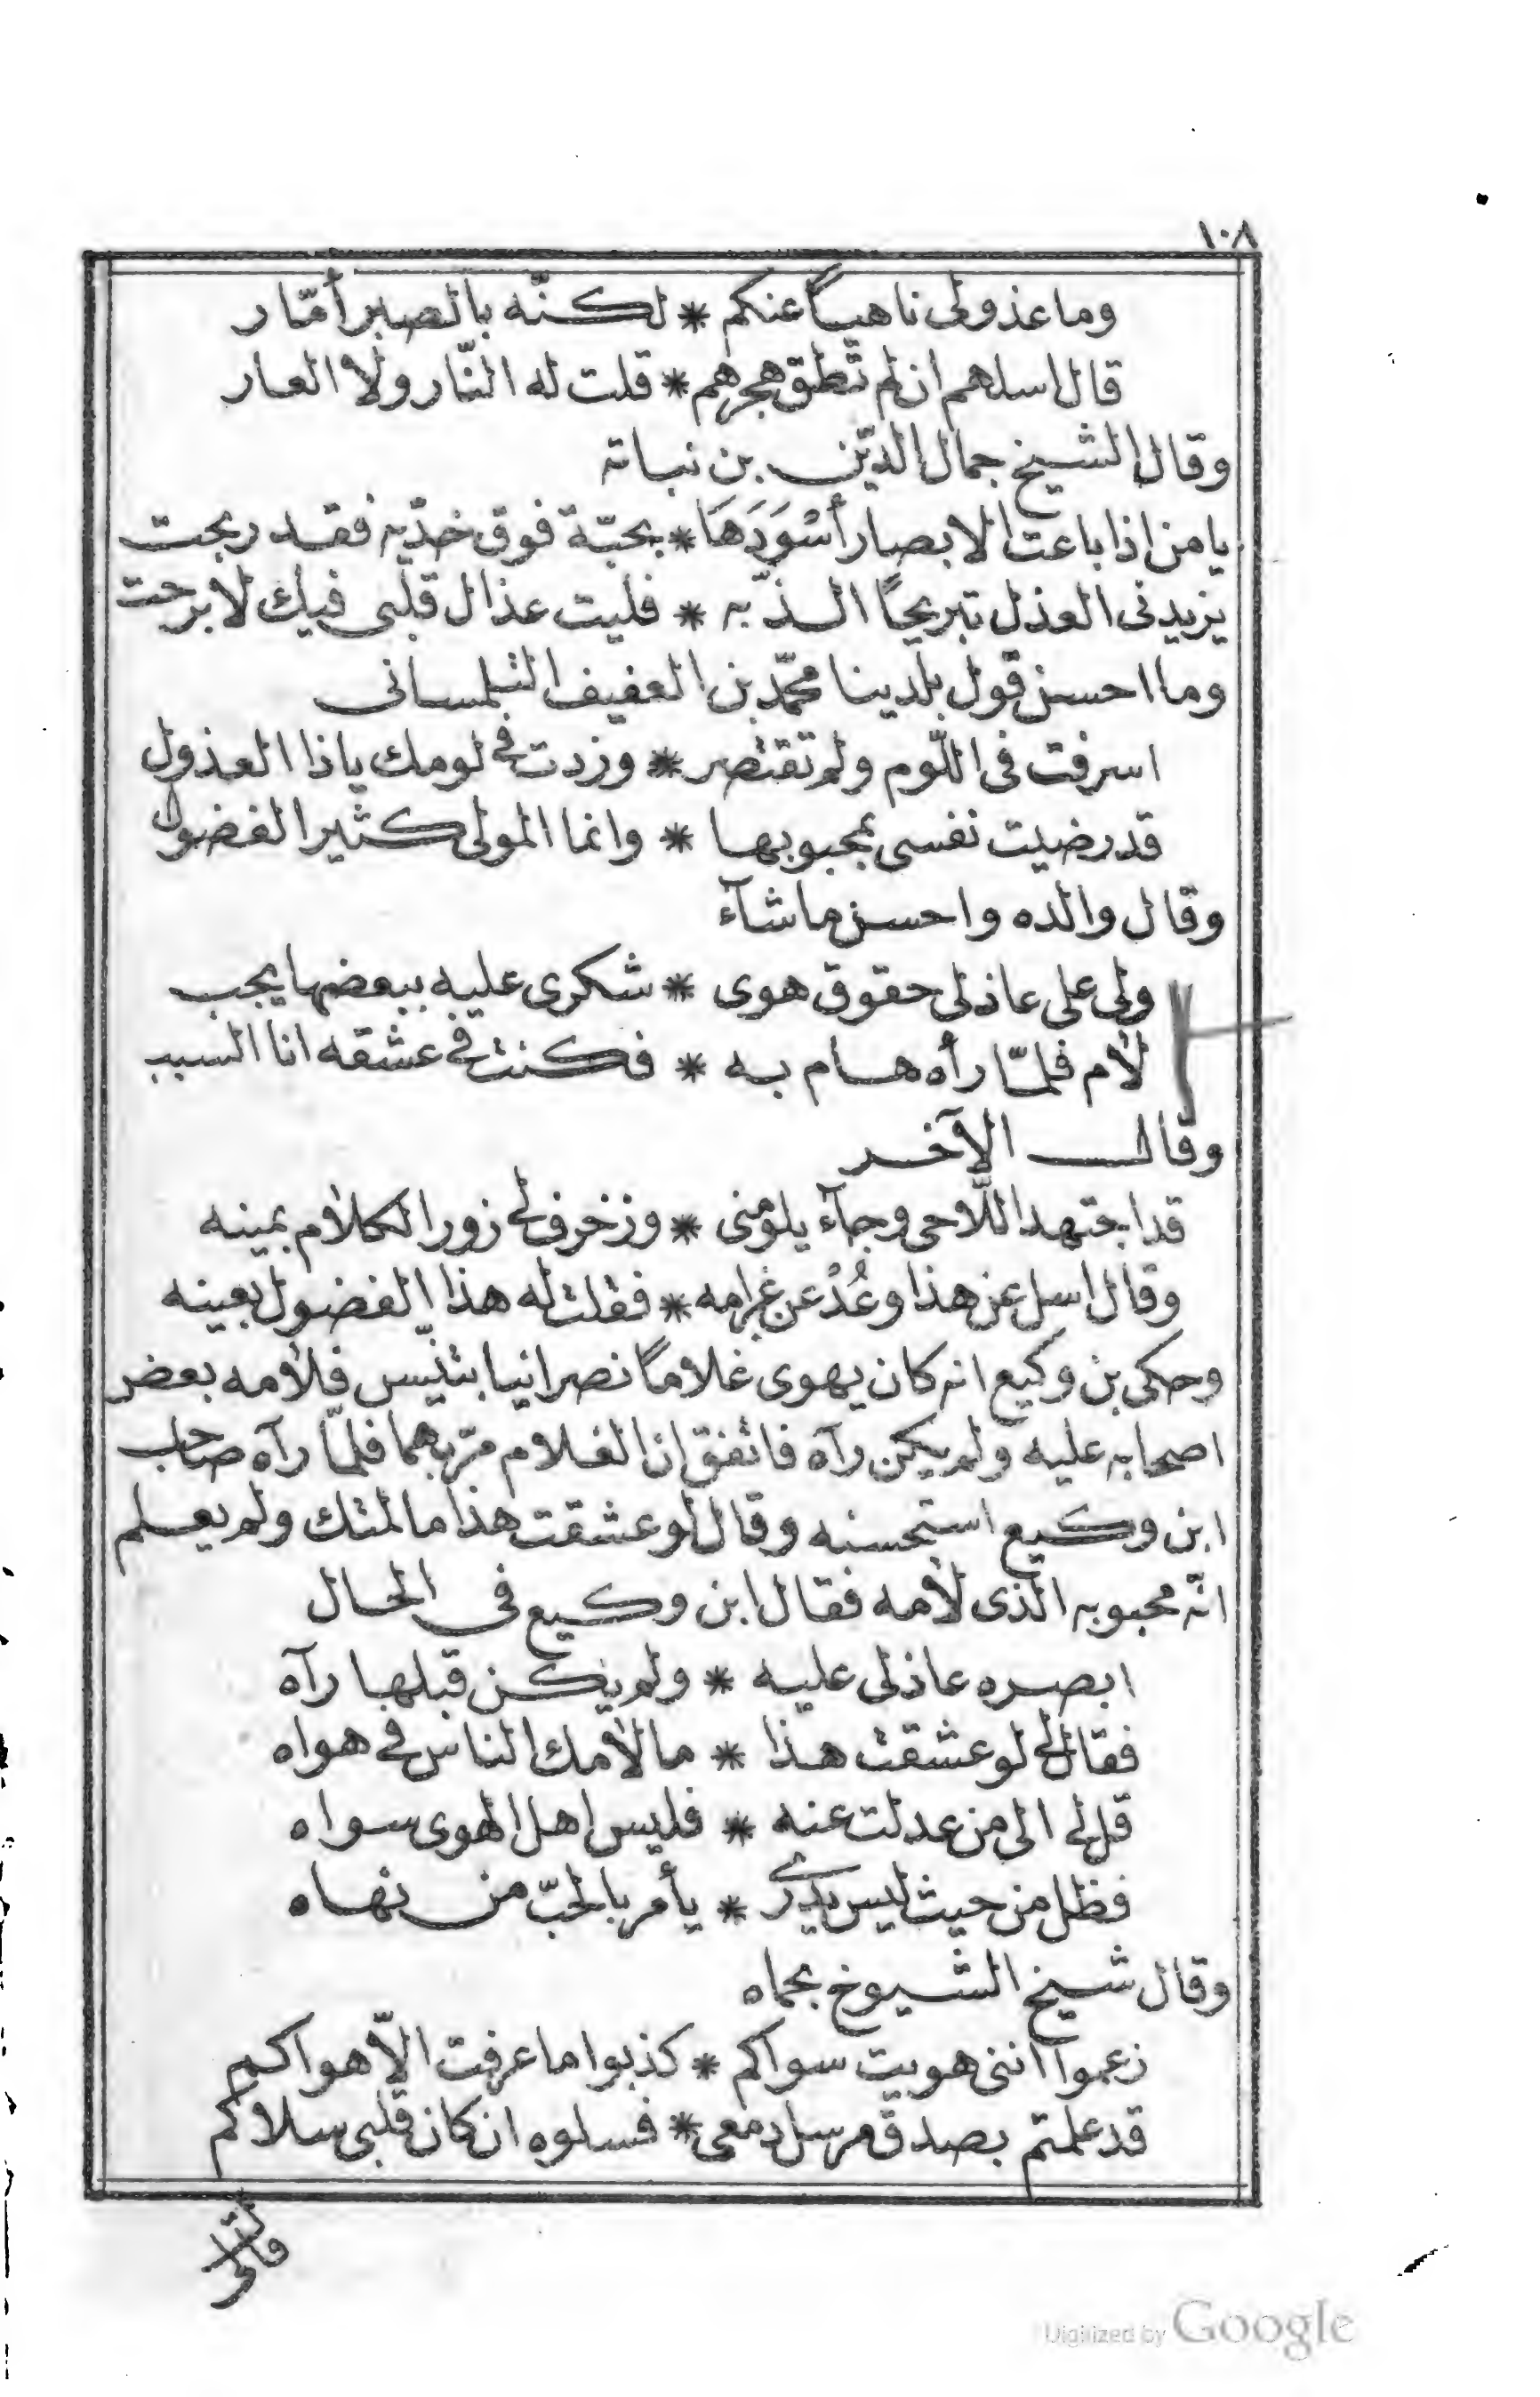 ١٠٨
وما عذولى ناهيًا عنكم * لكنّه بالصبر أمّار
قال اسلهم ان لم تطق هجرهم * قلت له النّار ولا العار
وقال الشيخ جمال الدّين بن نباتة
يا من اذا باعت الابصار أَسْوَدَهَا * بحبّة فوق خدّيه فقد ربحت
يزيدنى العذل تبريحًا الذّ به * فليت عذال قلبى فيك لا برحت
وما احسن قول بلدينا محمّد بن العفيف التلمسانى
اسرفت فى اللّوم ولم تقتصر * وزدت فى لومك ياذا العذول
قد رضيت نفسى بمحبوبها * وانما المولى كثير الفضول
وقال والده واحسن ما شآء
ولى على عاذلى حقوق هوى * شكرى عليه ببعضها يجب
لأم فلمّا رأه هام به * فكنت فى عشقه انا السبب
وقال الآخر
قد اجتهد اللّاحى وجآء يلومنى * وزخرف لى زور الكلام بمينه
وقال اسل عن هذا وعُدْ عن غرامه * فقلت له هذا الفضول بعينه
وحكى بن وكيع انه كان يهوى غلامًا نصرانيا بتنّيس فلأمه بعض
اصحابه عليه ولم يكن رآه فاتفق ان الغلام مرّ بهما فلمّا رآه صاحب
ابن وكيع استحسنه وقال لو عشقت هذا ما لمتك ولم يعلم
انّه محبوبه الذى لأمه فقال ابن وكيع فى الحال
ابصره عاذلى عليه * ولم يكن قبلها رآه
فقال لى لو عشقت هذا * ما لأمك الناس فى هواه
قل لى الى من عدلت عنه * فليس اهل الهوى سواه
فظل من حيث ليس يدرى * يأمر بالحبّ من نهاه
وقال شيخ الشيوخ بحماه
زعموا اننى هويت سواكم * كذبوا ما عرفت الّا هواكم
قد علمتم بصدق مرسل دمعى * فسلوه ان كان قلبى سلاكم
Digitized by Google